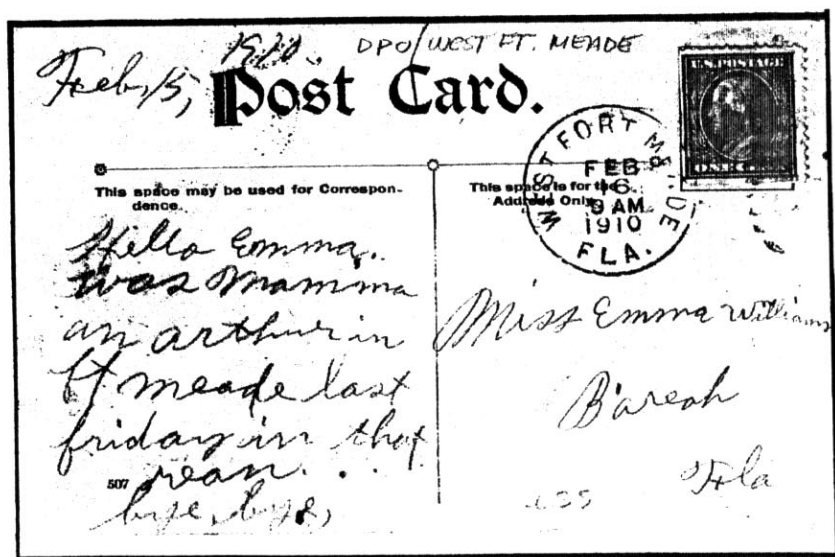 1910. DPO/WEST FT. MEADE
Feb, 15,
Post Card.
U.S. POSTAGE
WEST FORT MEADE
FEB
16
9 AM
1910
FLA.
This space may be used for Correspon-
dence.
This space is for the
Address Only.
Hello Emma.
was Mamma
an arthur in
ft meade last
friday in that
rean. . .
507
bye, bye,
Miss Emma Williams
Bareah
Fla